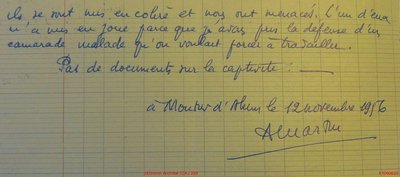 ils se sont mis en colère et nous ont menacés. L'un d'eux
m'a mis en joue parce que j'avais pris la défense d'un
camarade malade qu'on voulait forcer à travailler.
Pas de documents sur la captivité :
à Moutier d'Ahun le 12 novembre 1956
AMartin